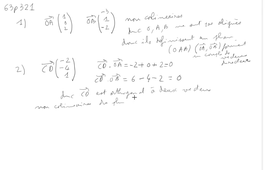 63p321
1) OA (1 1 2) OB (-3 1 -2) non colinéaires
donc O, A, B ne sont pas alignés
donc ils définissent un plan
(OAB) (OA, OB) forment un couple de vecteurs directeurs
2) CD (-2 -4 1) CD . OA = -2 + 0 + 2 = 0
CD . OB = 6 - 4 - 2 = 0
donc CD est orthogonal à deux vecteurs
non colinéaires du plan